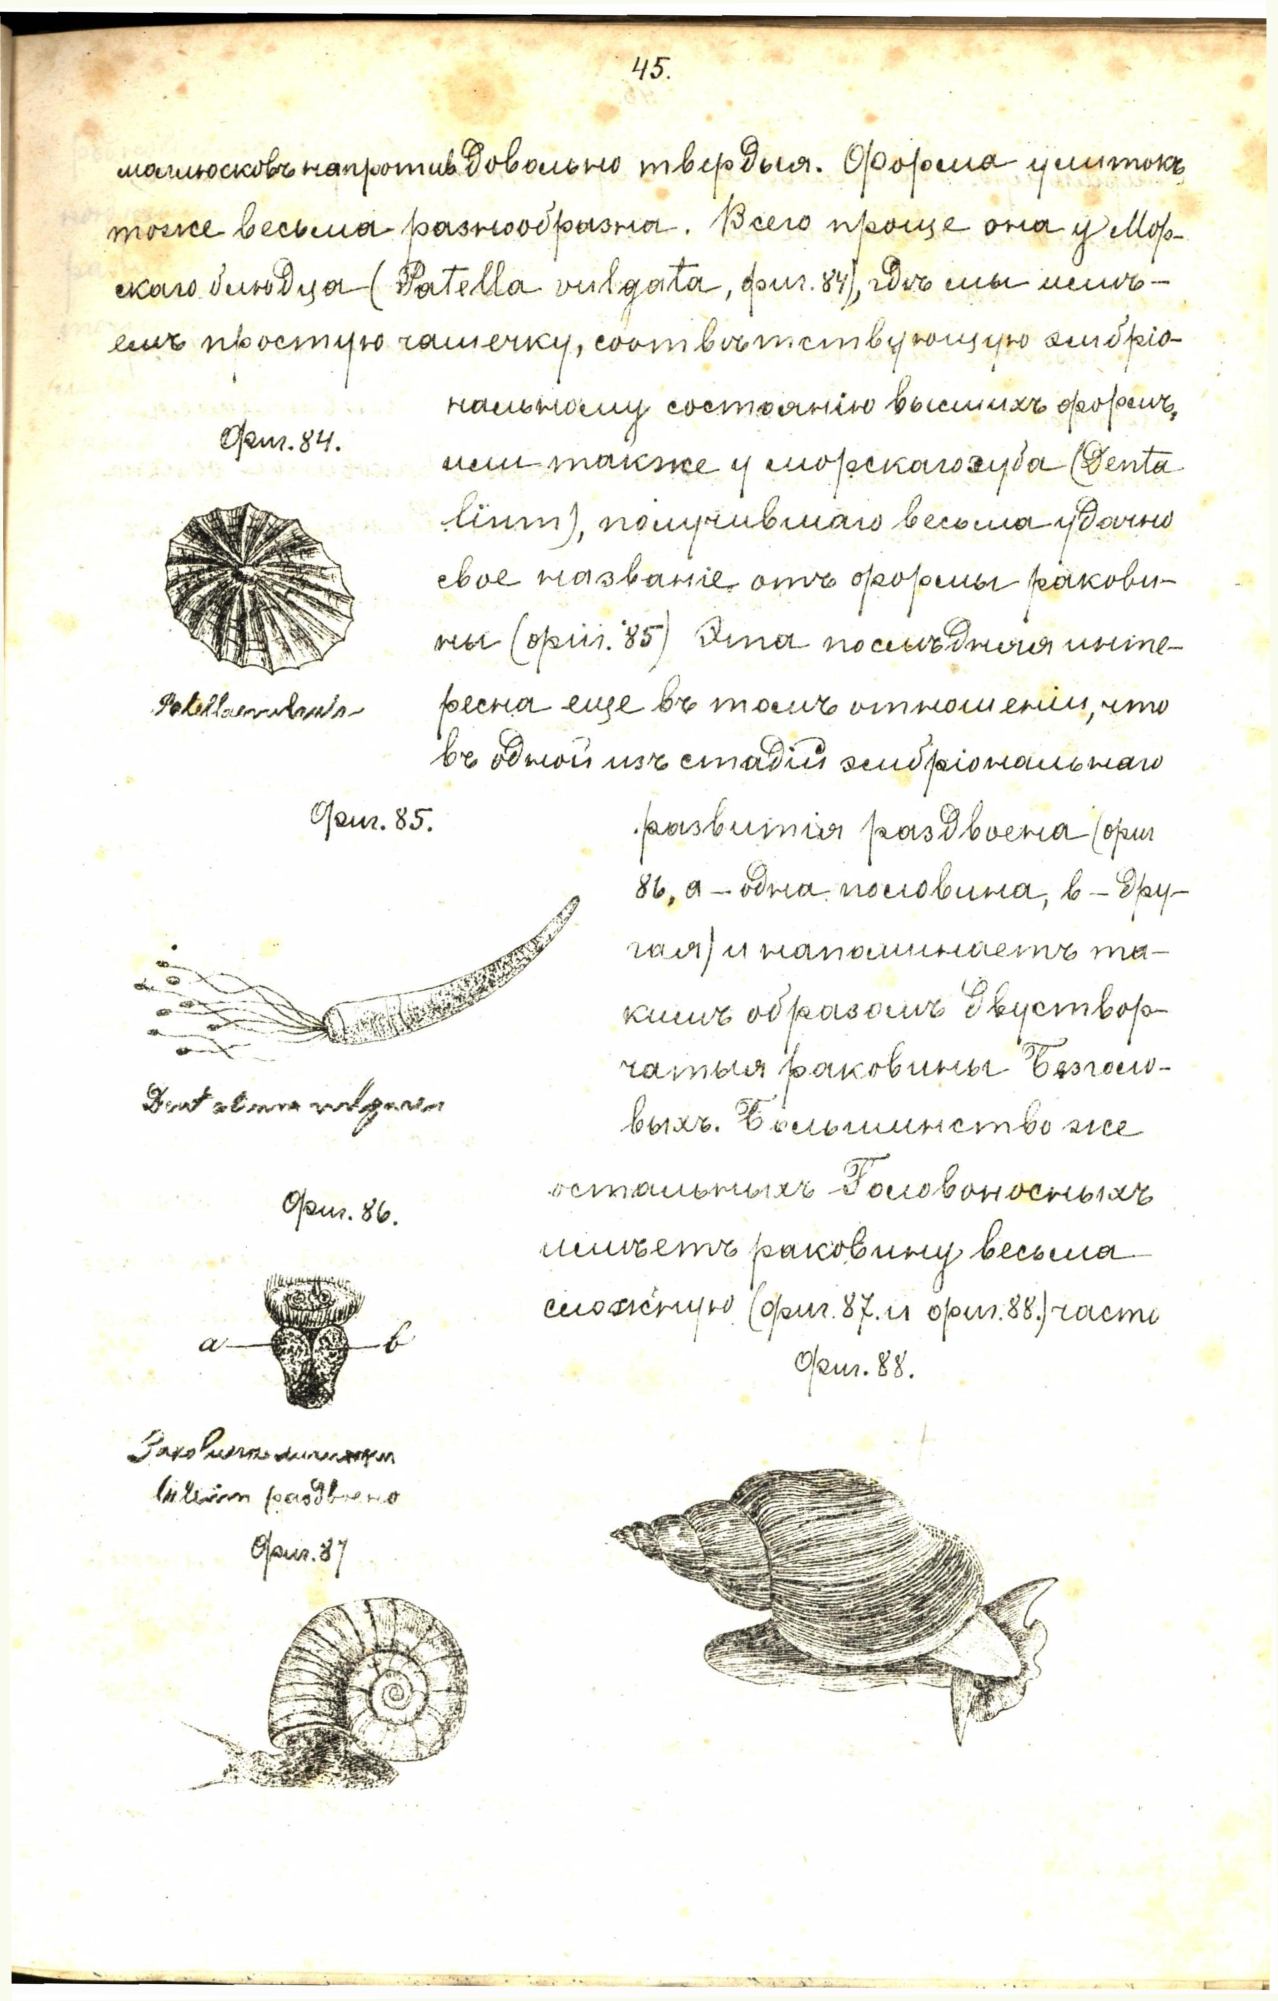 45.
маллюсковъ напротивъ довольно твердыя. Форма улитокъ
тоже весьма разнообразна. Всего проще она у Мор-
скаго блюдца (Patella vulgata, фиг. 84), гдѣ мы имѣ-
емъ простую чашечку, соотвѣтствующую эмбріо-
нальному состоянію высшихъ формъ,
или также у морскаго зуба (Denta
lium), получившаго весьма удачно
свое названіе отъ формы ракови-
ны (фиг. 85) Эта послѣдняя инте-
ресна еще въ томъ отношеніи, что
въ одной изъ стадій эмбріональнаго
развитія раздвоена (фиг
86, а – одна половина, в – дру-
гая) и напоминаетъ та-
кимъ образомъ двуствор-
чатыя раковины Безголо-
выхъ. Большинство же
остальныхъ Головоносныхъ
имѣетъ раковину весьма
сложную (фиг. 87. и фиг. 88.) часто
Фиг. 84.
Patella
Фиг. 85.
Dentalium vulgare
Фиг. 86.
а
в
Раковина
раздвоена
Фиг. 87
Фиг. 88.